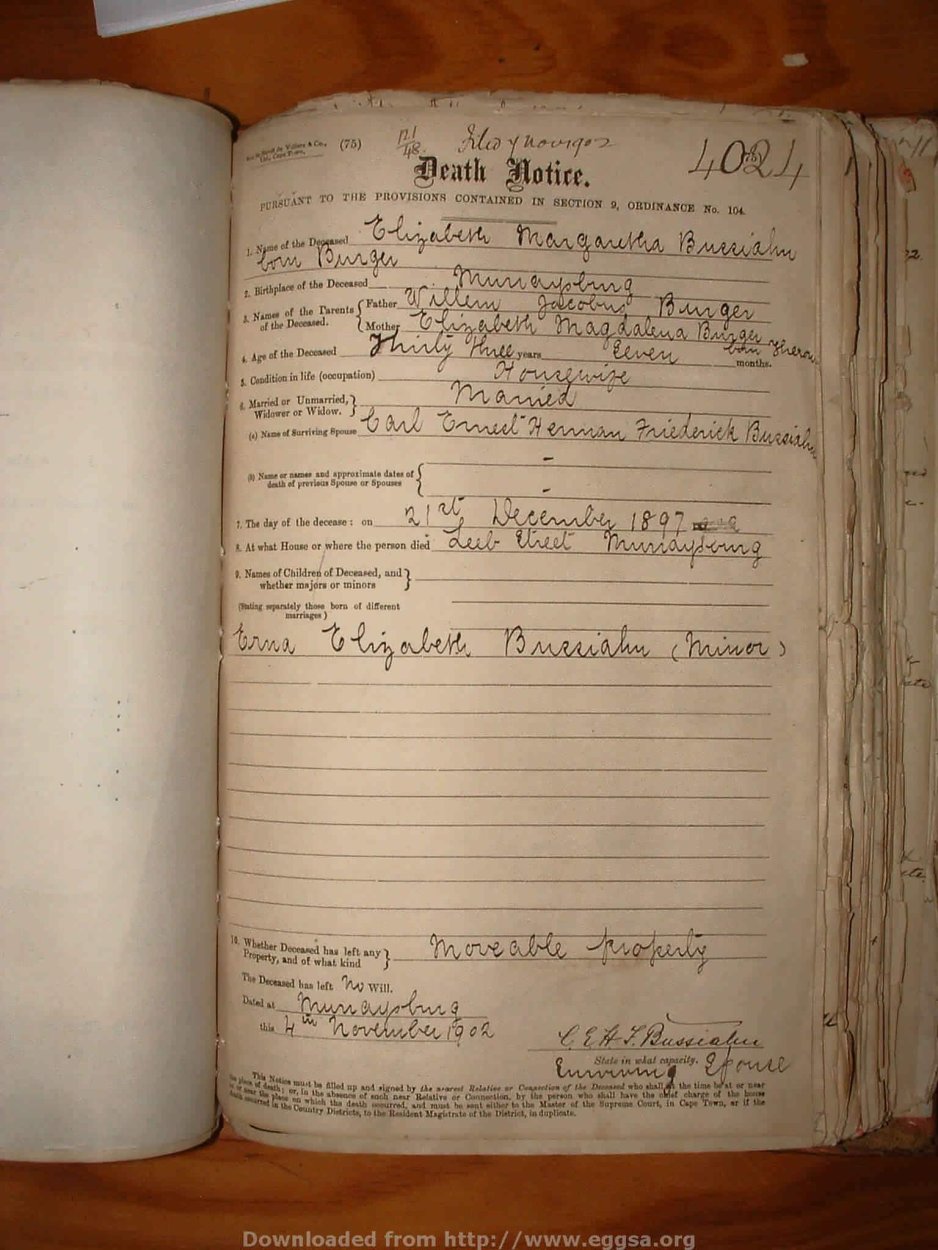 Van de Sandt de Villiers & Co., Ltd., Cape Town. (75) 121/48 Filed 7 Nov 1902 4024
Death Notice.
PURSUANT TO THE PROVISIONS CONTAINED IN SECTION 9, ORDINANCE No. 104.
1. Name of the Deceased Elizabeth Margaretha Bussiahn
born Burger
2. Birthplace of the Deceased Murraysburg
3. Names of the Parents of the Deceased. { Father Willem Jacobus Burger
Mother Elizabeth Magdalena Burger born Theron
4. Age of the Deceased Thirty three years Eleven months.
5. Condition in life (occupation) Housewife
6. Married or Unmarried, Widower or Widow. } Married
(a) Name of Surviving Spouse Carl Ernest Herman Friederick Bussiahn
(b) Name or names and approximate dates of death of previous Spouse or Spouses { -
-
7. The day of the decease: on 21st December 1897
8. At what House or where the person died Leeb Street Murraysburg
9. Names of Children of Deceased, and whether majors or minors }
(Stating separately those born of different marriages)
Erna Elizabeth Bussiahn (Minor)
10. Whether Deceased has left any Property, and of what kind } Moveable property
The Deceased has left No Will.
Dated at Murraysburg
this 4th November 1902
C. E. H. F. Bussiahn
State in what capacity.
Surviving Spouse
This Notice must be filled up and signed by the nearest Relative or Connection of the Deceased who shall at the time be at or near
the place of death; or, in the absence of such near Relative or Connection, by the person who shall have the chief charge of the house
in or near the place on which the death occurred, and must be sent either to the Master of the Supreme Court, in Cape Town, or if the
death occurred in the Country Districts, to the Resident Magistrate of the District, in duplicate.
Downloaded from http://www.eggsa.org